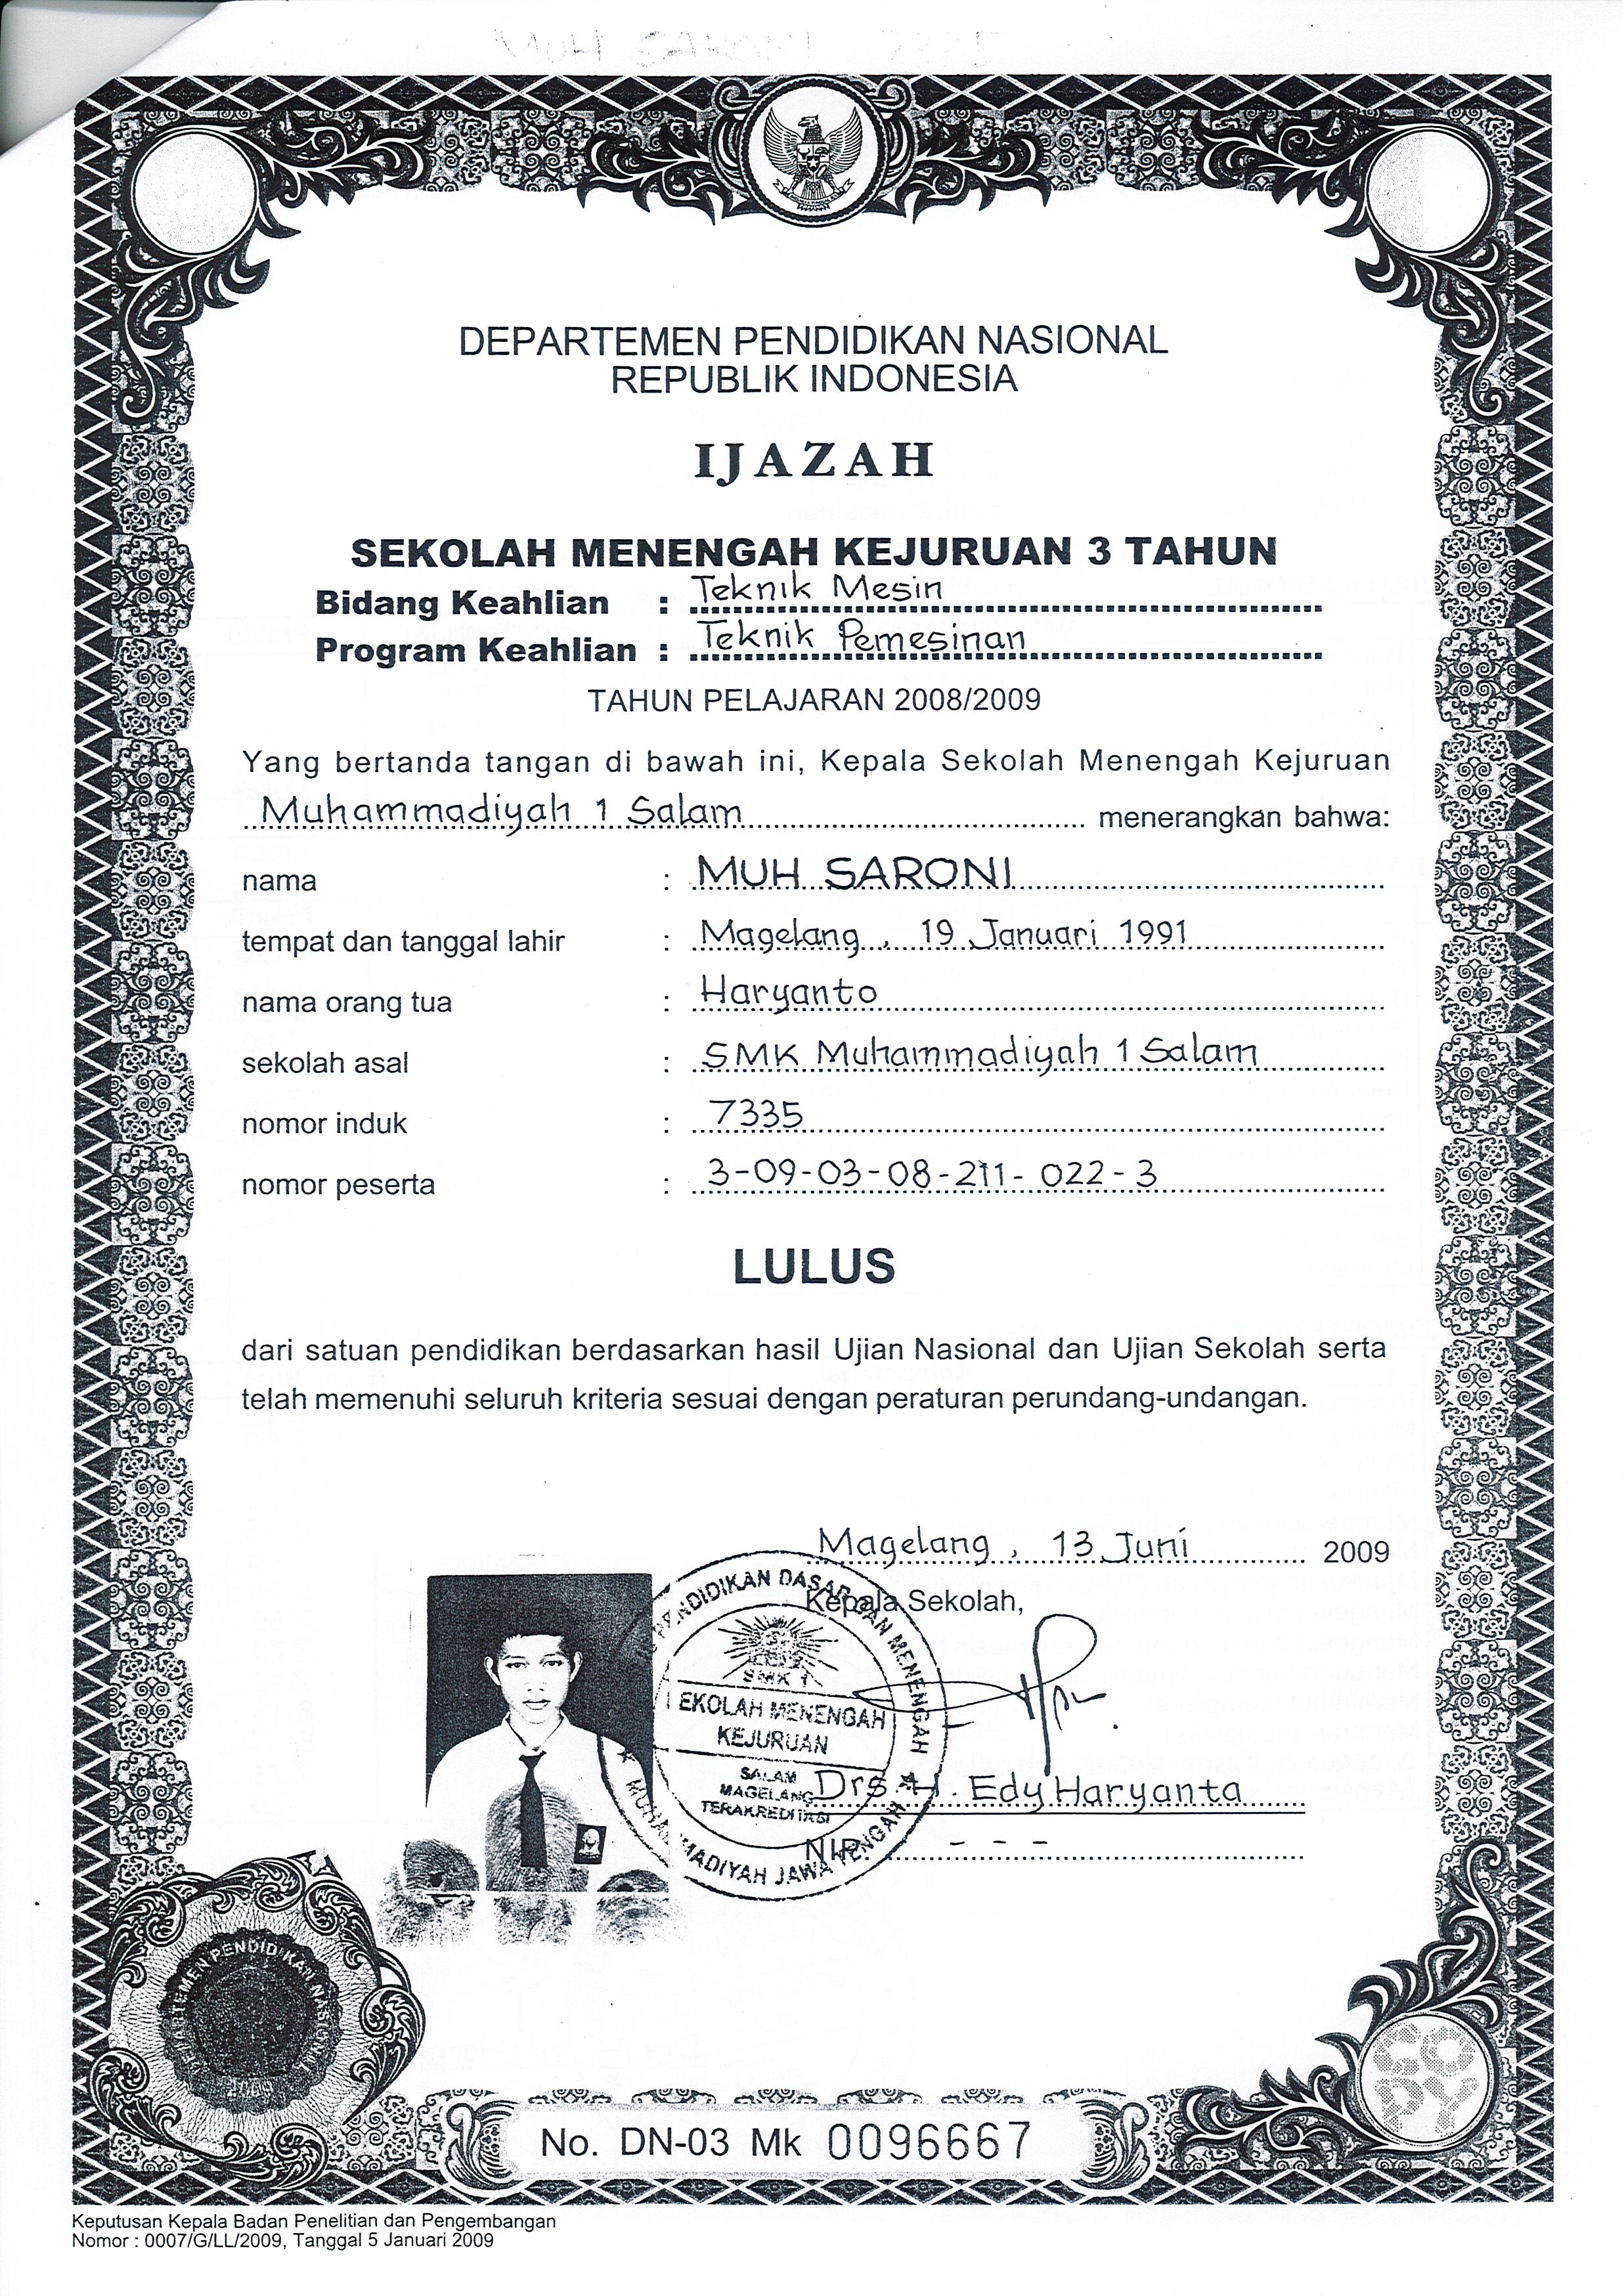 DEPARTEMEN PENDIDIKAN NASIONAL
REPUBLIK INDONESIA
IJAZAH
SEKOLAH MENENGAH KEJURUAN 3 TAHUN
Bidang Keahlian : Teknik Mesin
Program Keahlian : Teknik Pemesinan
TAHUN PELAJARAN 2008/2009
Yang bertanda tangan di bawah ini, Kepala Sekolah Menengah Kejuruan
Muhammadiyah 1 Salam menerangkan bahwa:
nama : MUH SARONI
tempat dan tanggal lahir : Magelang, 19 Januari 1991
nama orang tua : Haryanto
sekolah asal : SMK Muhammadiyah 1 Salam
nomor induk : 7335
nomor peserta : 3-09-03-08-211-022-3
LULUS
dari satuan pendidikan berdasarkan hasil Ujian Nasional dan Ujian Sekolah serta
telah memenuhi seluruh kriteria sesuai dengan peraturan perundang-undangan.
Magelang, 13 Juni 2009
Kepala Sekolah,
PENDIDIKAN DASAR DAN MENENGAH
SMK 1
EKOLAH MENENGAH
KEJURUAN
SALAM
MAGELANG
TERAKREDITASI
MADIYAH JAWA TENGAH
Drs. H. Edy Haryanta
NIP. - - -
DEPARTEMEN PENDIDIKAN NASIONAL
COPY
No. DN-03 Mk 0096667
Keputusan Kepala Badan Penelitian dan Pengembangan
Nomor : 0007/G/LL/2009, Tanggal 5 Januari 2009